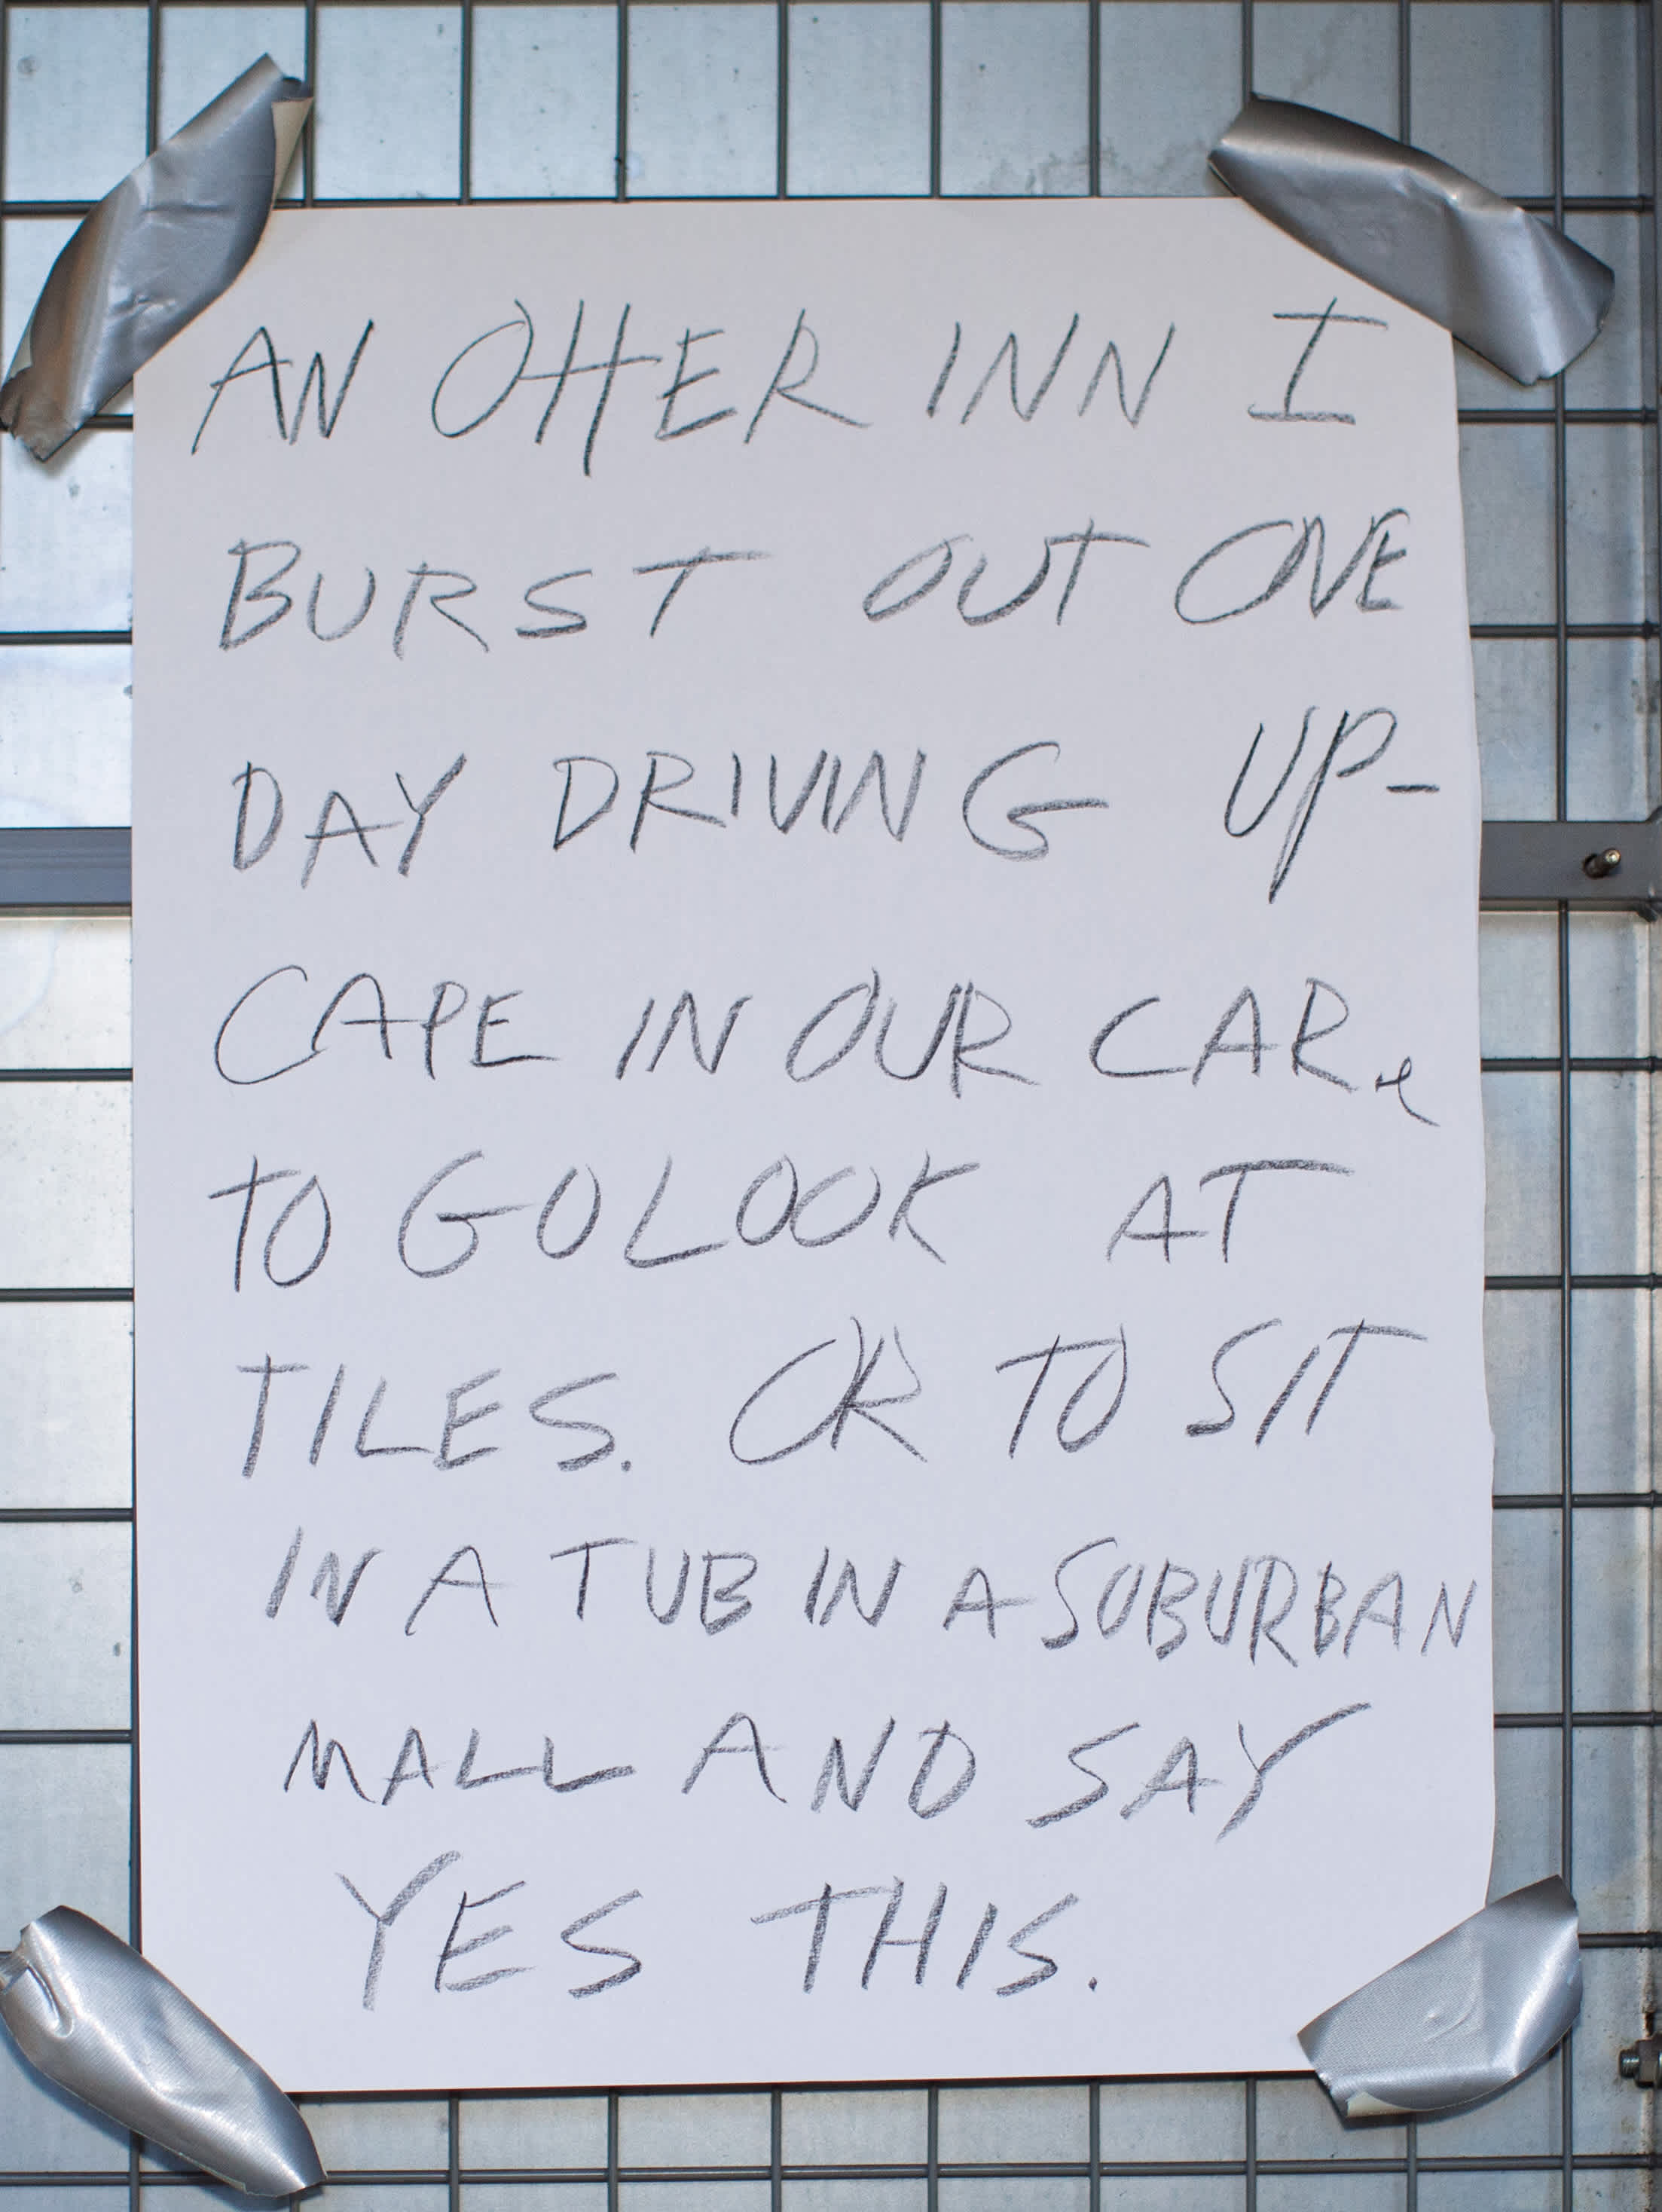 AN OTHER INN I
BURST OUT ONE
DAY DRIVING UP-
CAPE IN OUR CAR,
TO GO LOOK AT
TILES. OR TO SIT
IN A TUB IN A SUBURBAN
MALL AND SAY
YES THIS.